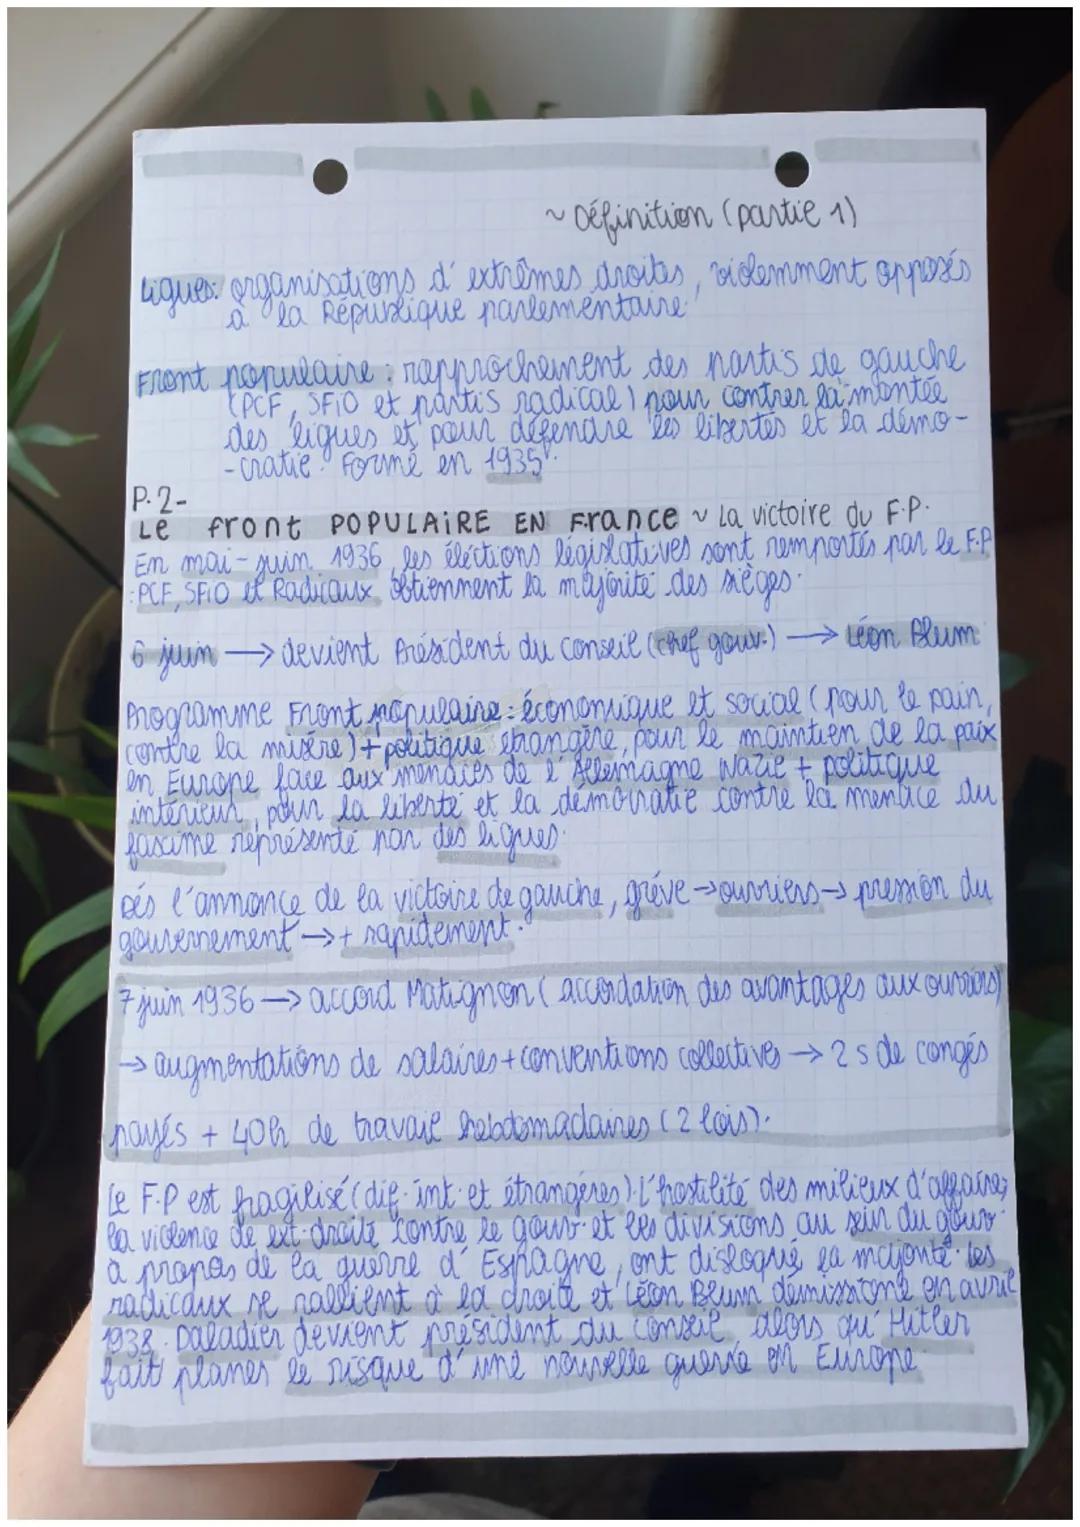 ~ Définition (partie 1)
Ligues: organisations d'extrêmes droites, violemment opposés
à la République parlementaire.
Front populaire : rapprochement des partis de gauche
(PCF, SFiO et partis radical) pour contrer la montée
des ligues et pour défendre les libertés et la démo-
-cratie. Formé en 1935.
P.2-
Le front POPULAiRE EN France ~ La victoire du F.P.
En mai-juin 1936, les éléctions législatives sont remportés par le F.P
: PCF, SFiO et Radicaux obtiennent la majorité des sièges.
6 juin → devient Président du conseil (chef gouv.) → Léon Blum
Programme Front populaire : économique et social (pour le pain,
contre la misère) + politique étrangère, pour le maintien de la paix
en Europe face aux menaces de l'Allemagne Nazie + politique
intérieur, pour la liberté et la démocratie contre la menace du
fascime représenté par des ligues.
Dés l'annonce de la victoire de gauche, grève → ouvriers → pression du
gouvernement → + rapidement.
7 juin 1936 → accord Matignon (accordation des avantages aux ouvriers)
→ augmentations de salaires + conventions collectives → 2 s de congés
payés + 40h de travail hebdomadaires (2 lois).
Le F.P est fragilisé (dif. int. et étrangères). L'hostilité des milieux d'affaires,
la violence de ext. droite contre le gouv. et les divisions au sein du gouv.
à propos de la guerre d'Espagne, ont disloqué la majorité. Les
radicaux se rallient à la droite et Léon Blum démissione en avril
1938. Daladier devient président du conseil alors qu'Hitler
fait planer le risque d'une nouvelle guerre en Europe.